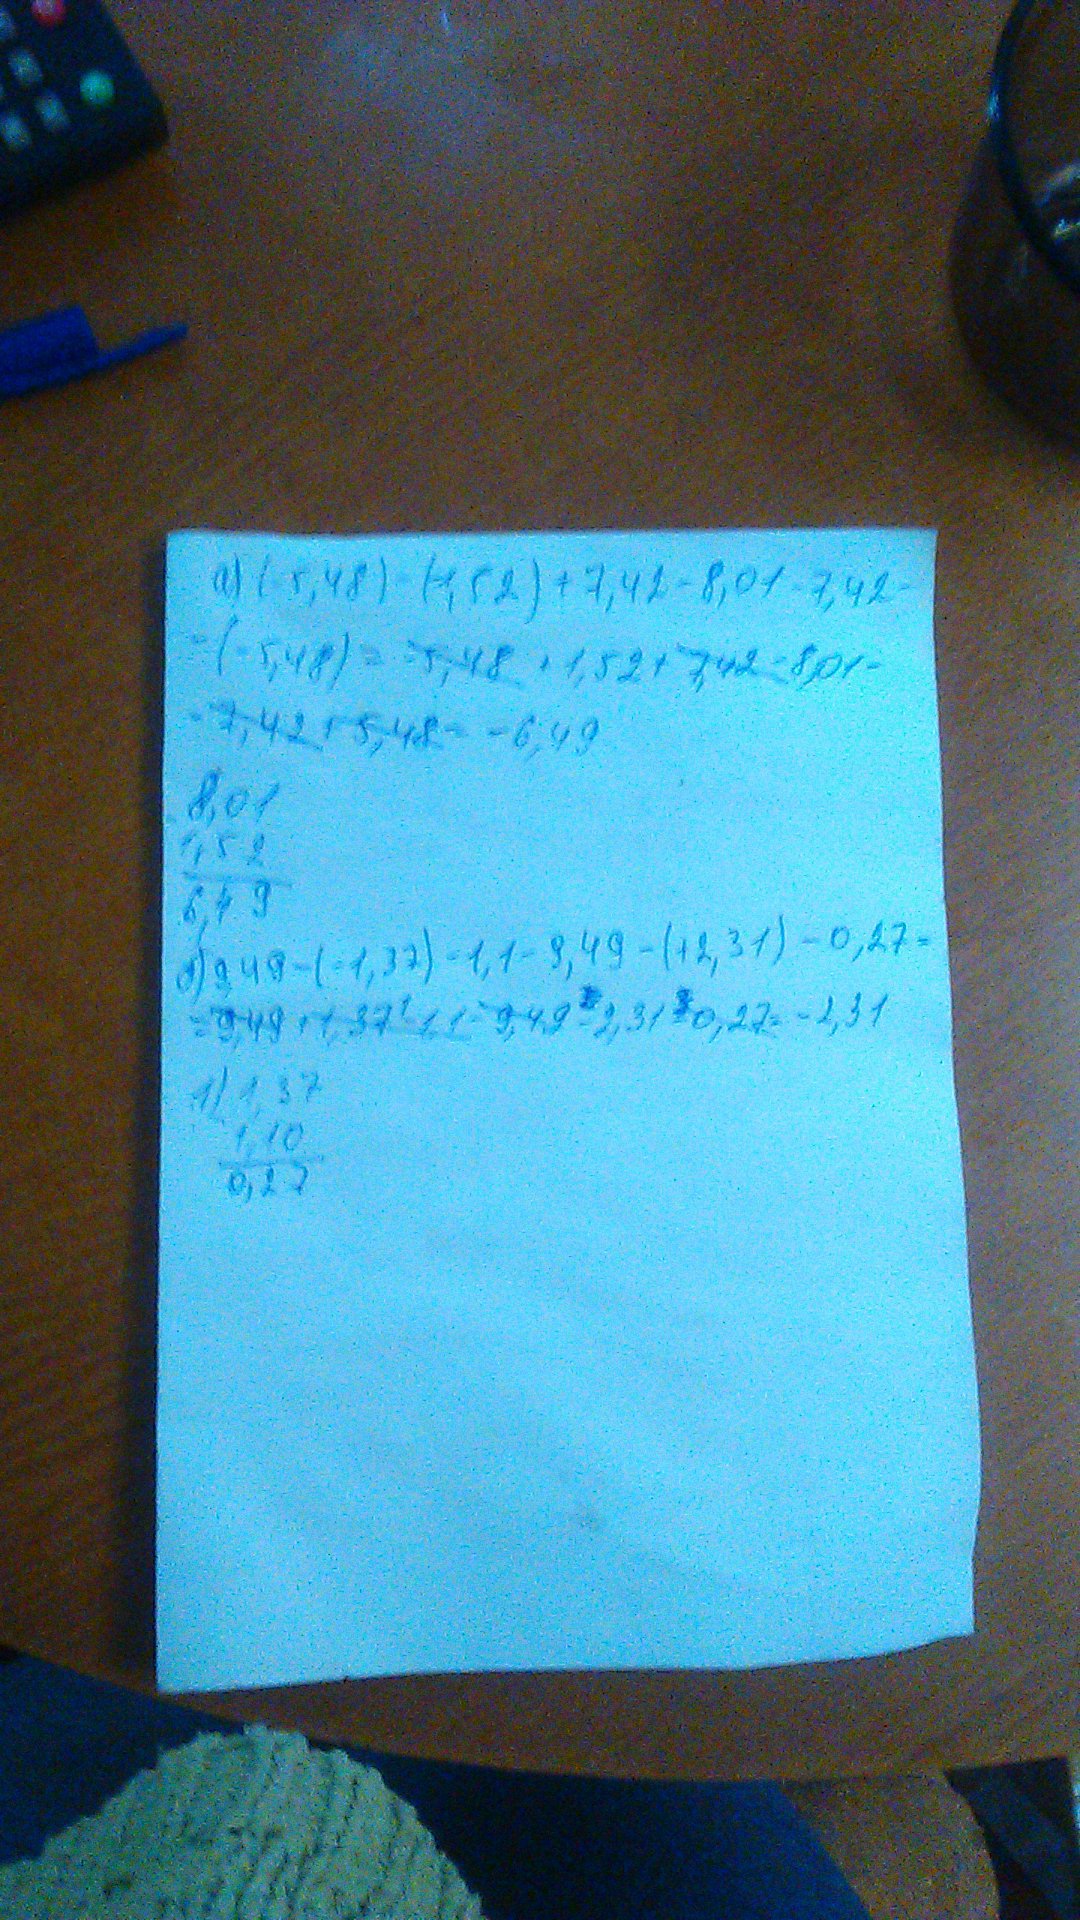 а) (-5,48) - (-1,52) + 7,42 - 8,01 - 7,42 -
- (-5,48) = -5,48 + 1,52 + 7,42 - 8,01 -
- 7,42 + 5,48 = -6,49
8,01
1,52
6,49
б) 9,49 - (-1,37) - 1,1 - 9,49 - (+2,31) - 0,27 =
= 9,49 + 1,37 - 1,1 - 9,49 - 2,31 - 0,27 = -2,31
1) 1,37
1,10
0,27